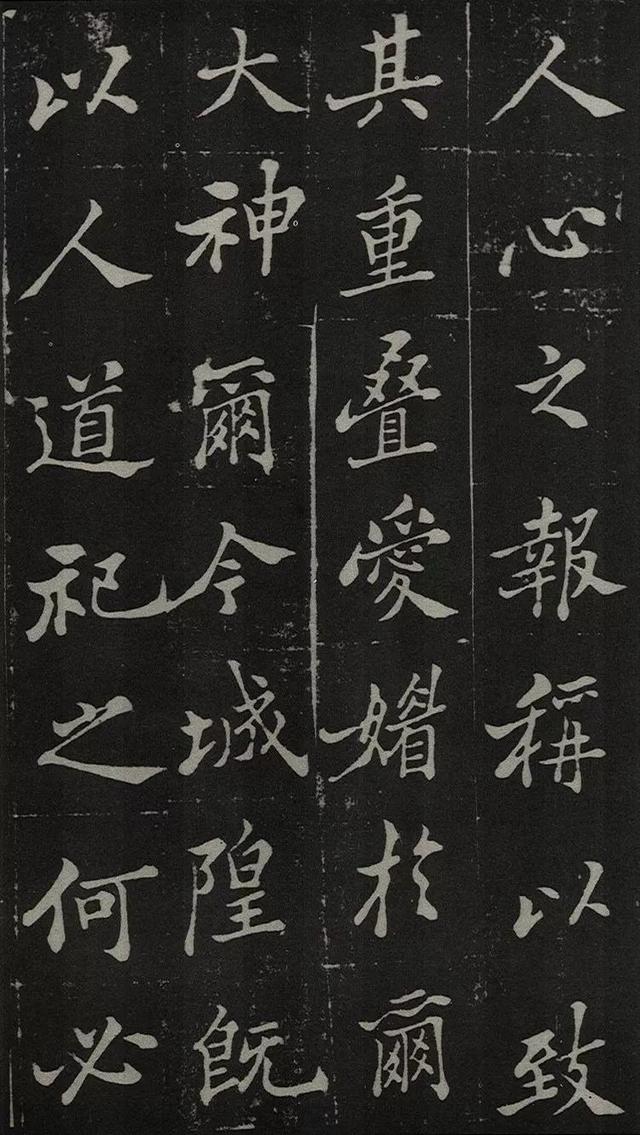 人心之報稱以致
其重疊愛媢於爾
大神爾今城隍既
以人道祀之何必